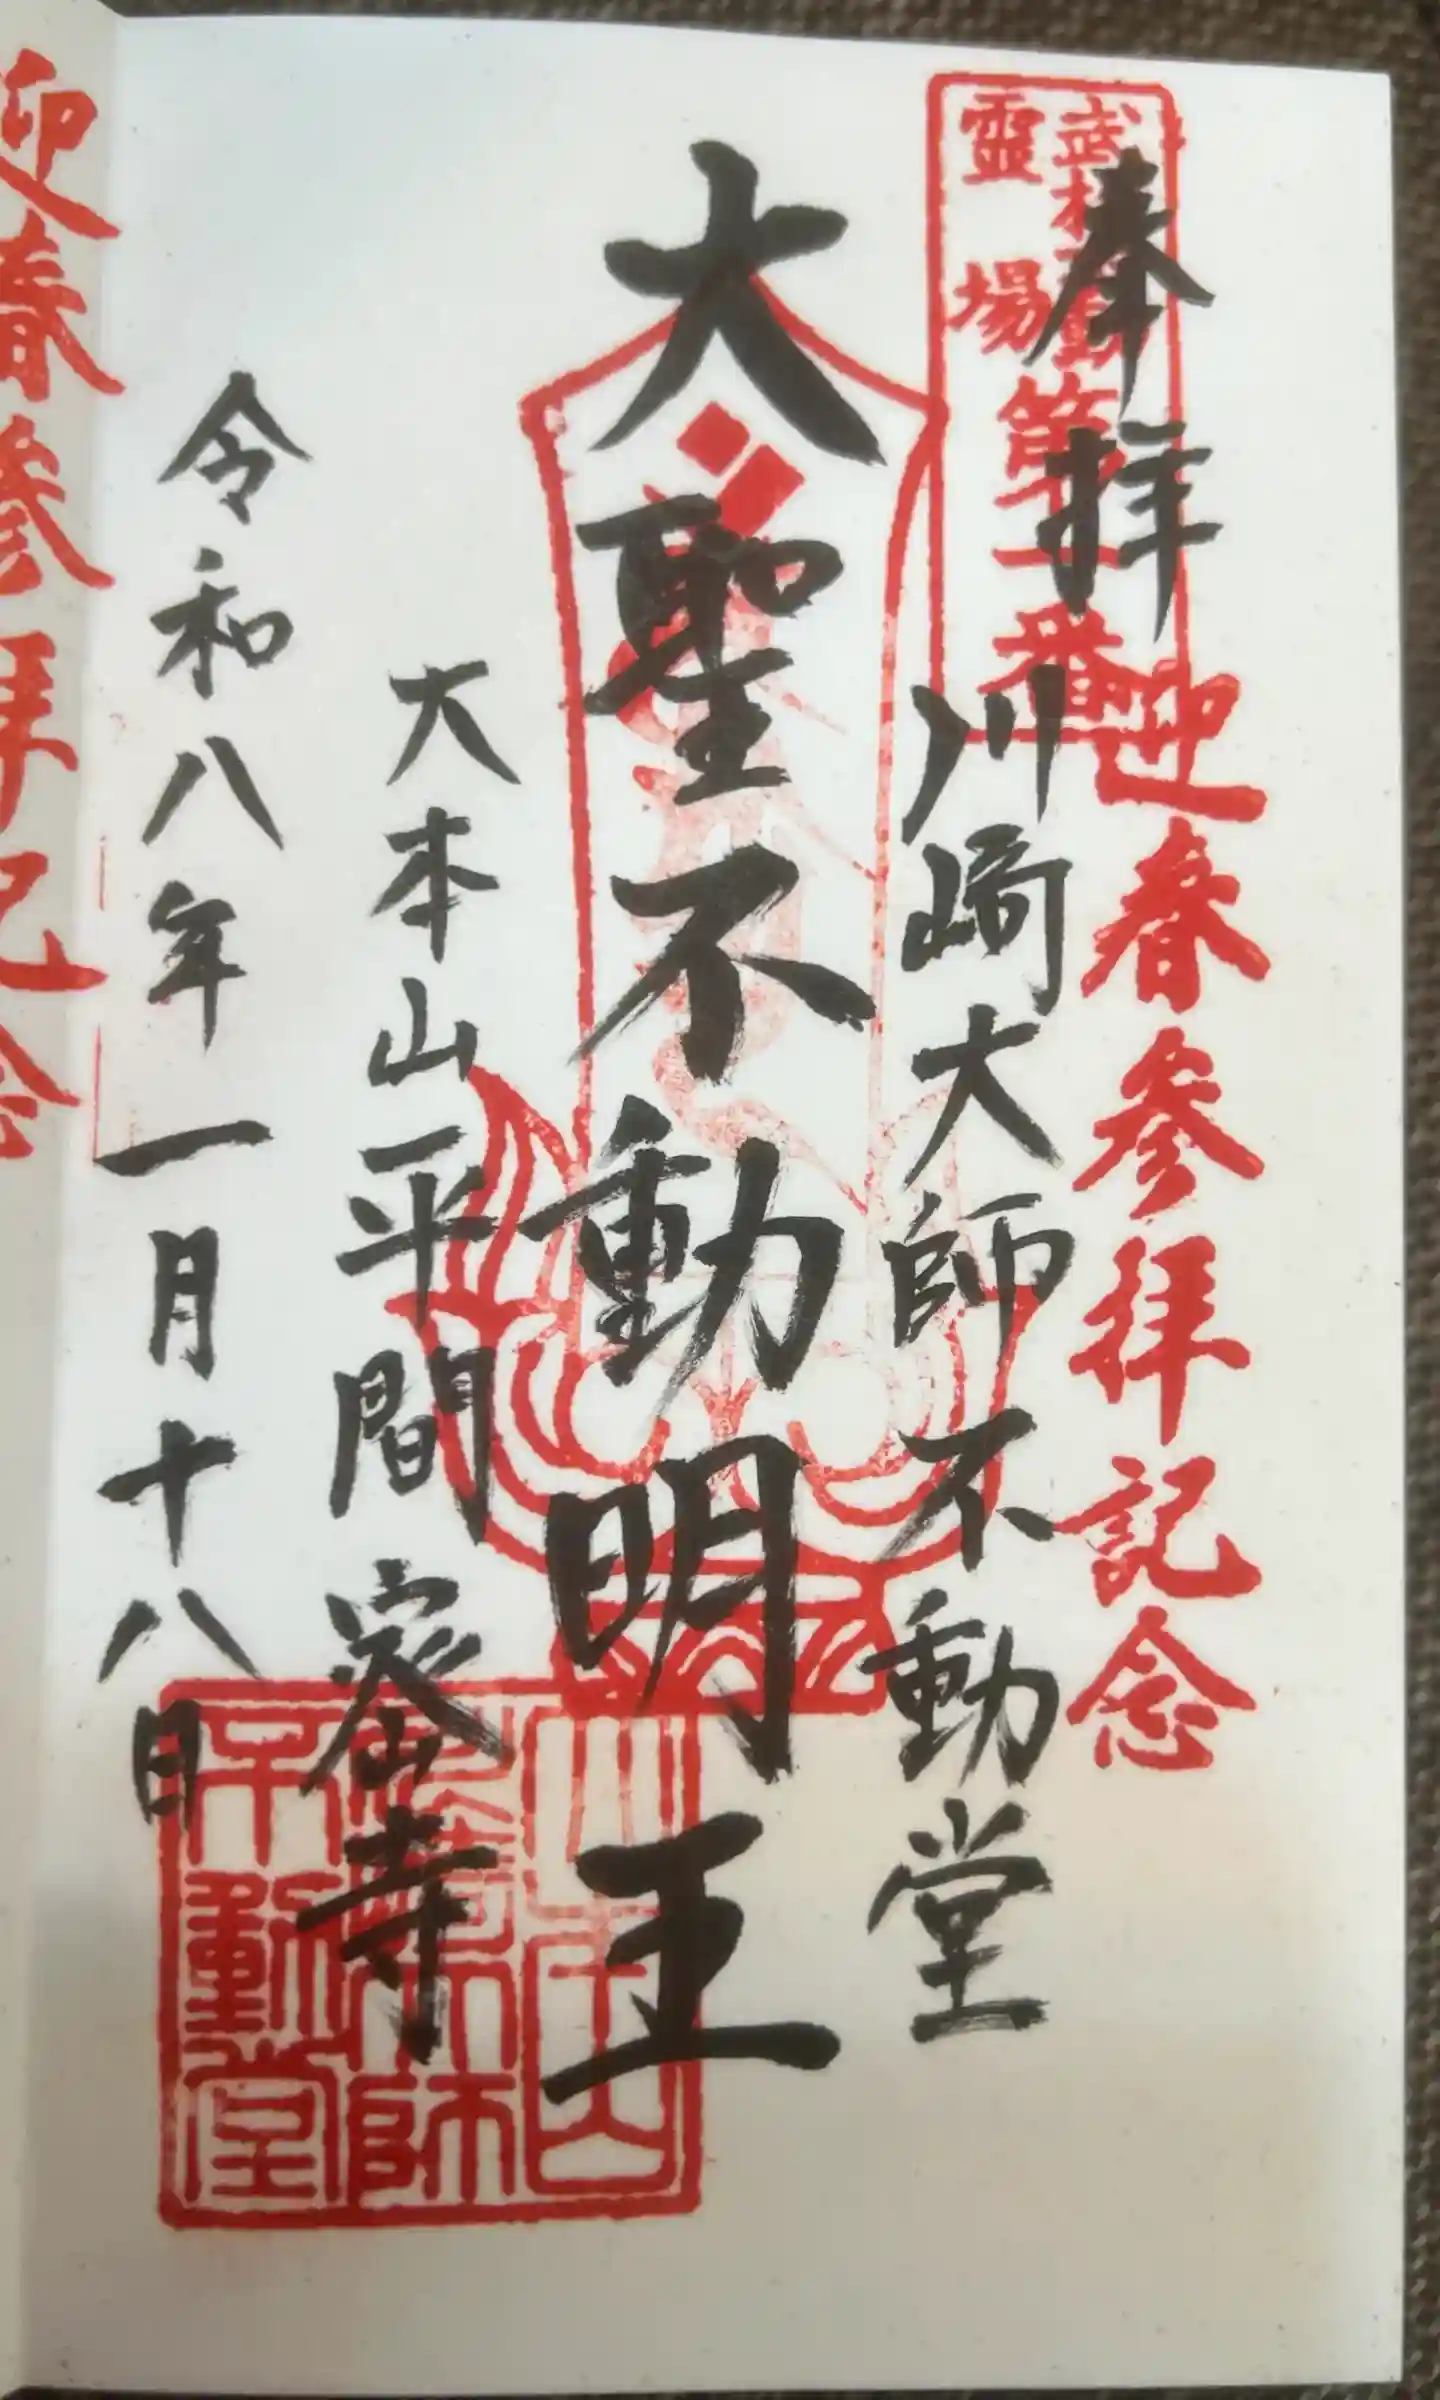 奉拝
武相不動
靈場
第一番
迎春参拝記念
川崎大師不動堂
大聖不動明王
大本山平間密寺
令和八年一月十八日
川
山
大師
不動堂
迎春参拝記念